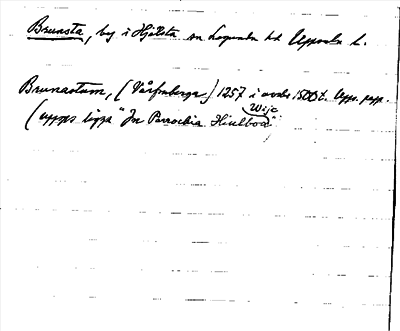 Brunsta, by i Hjälsta sn Lagunda hd Uppsala l.
Brunastum, (Vårfruberga) 1257 i avskr. 1500 t. Upps. papp.
Wije
(uppges ligga "In Parrochia Hiulboa"